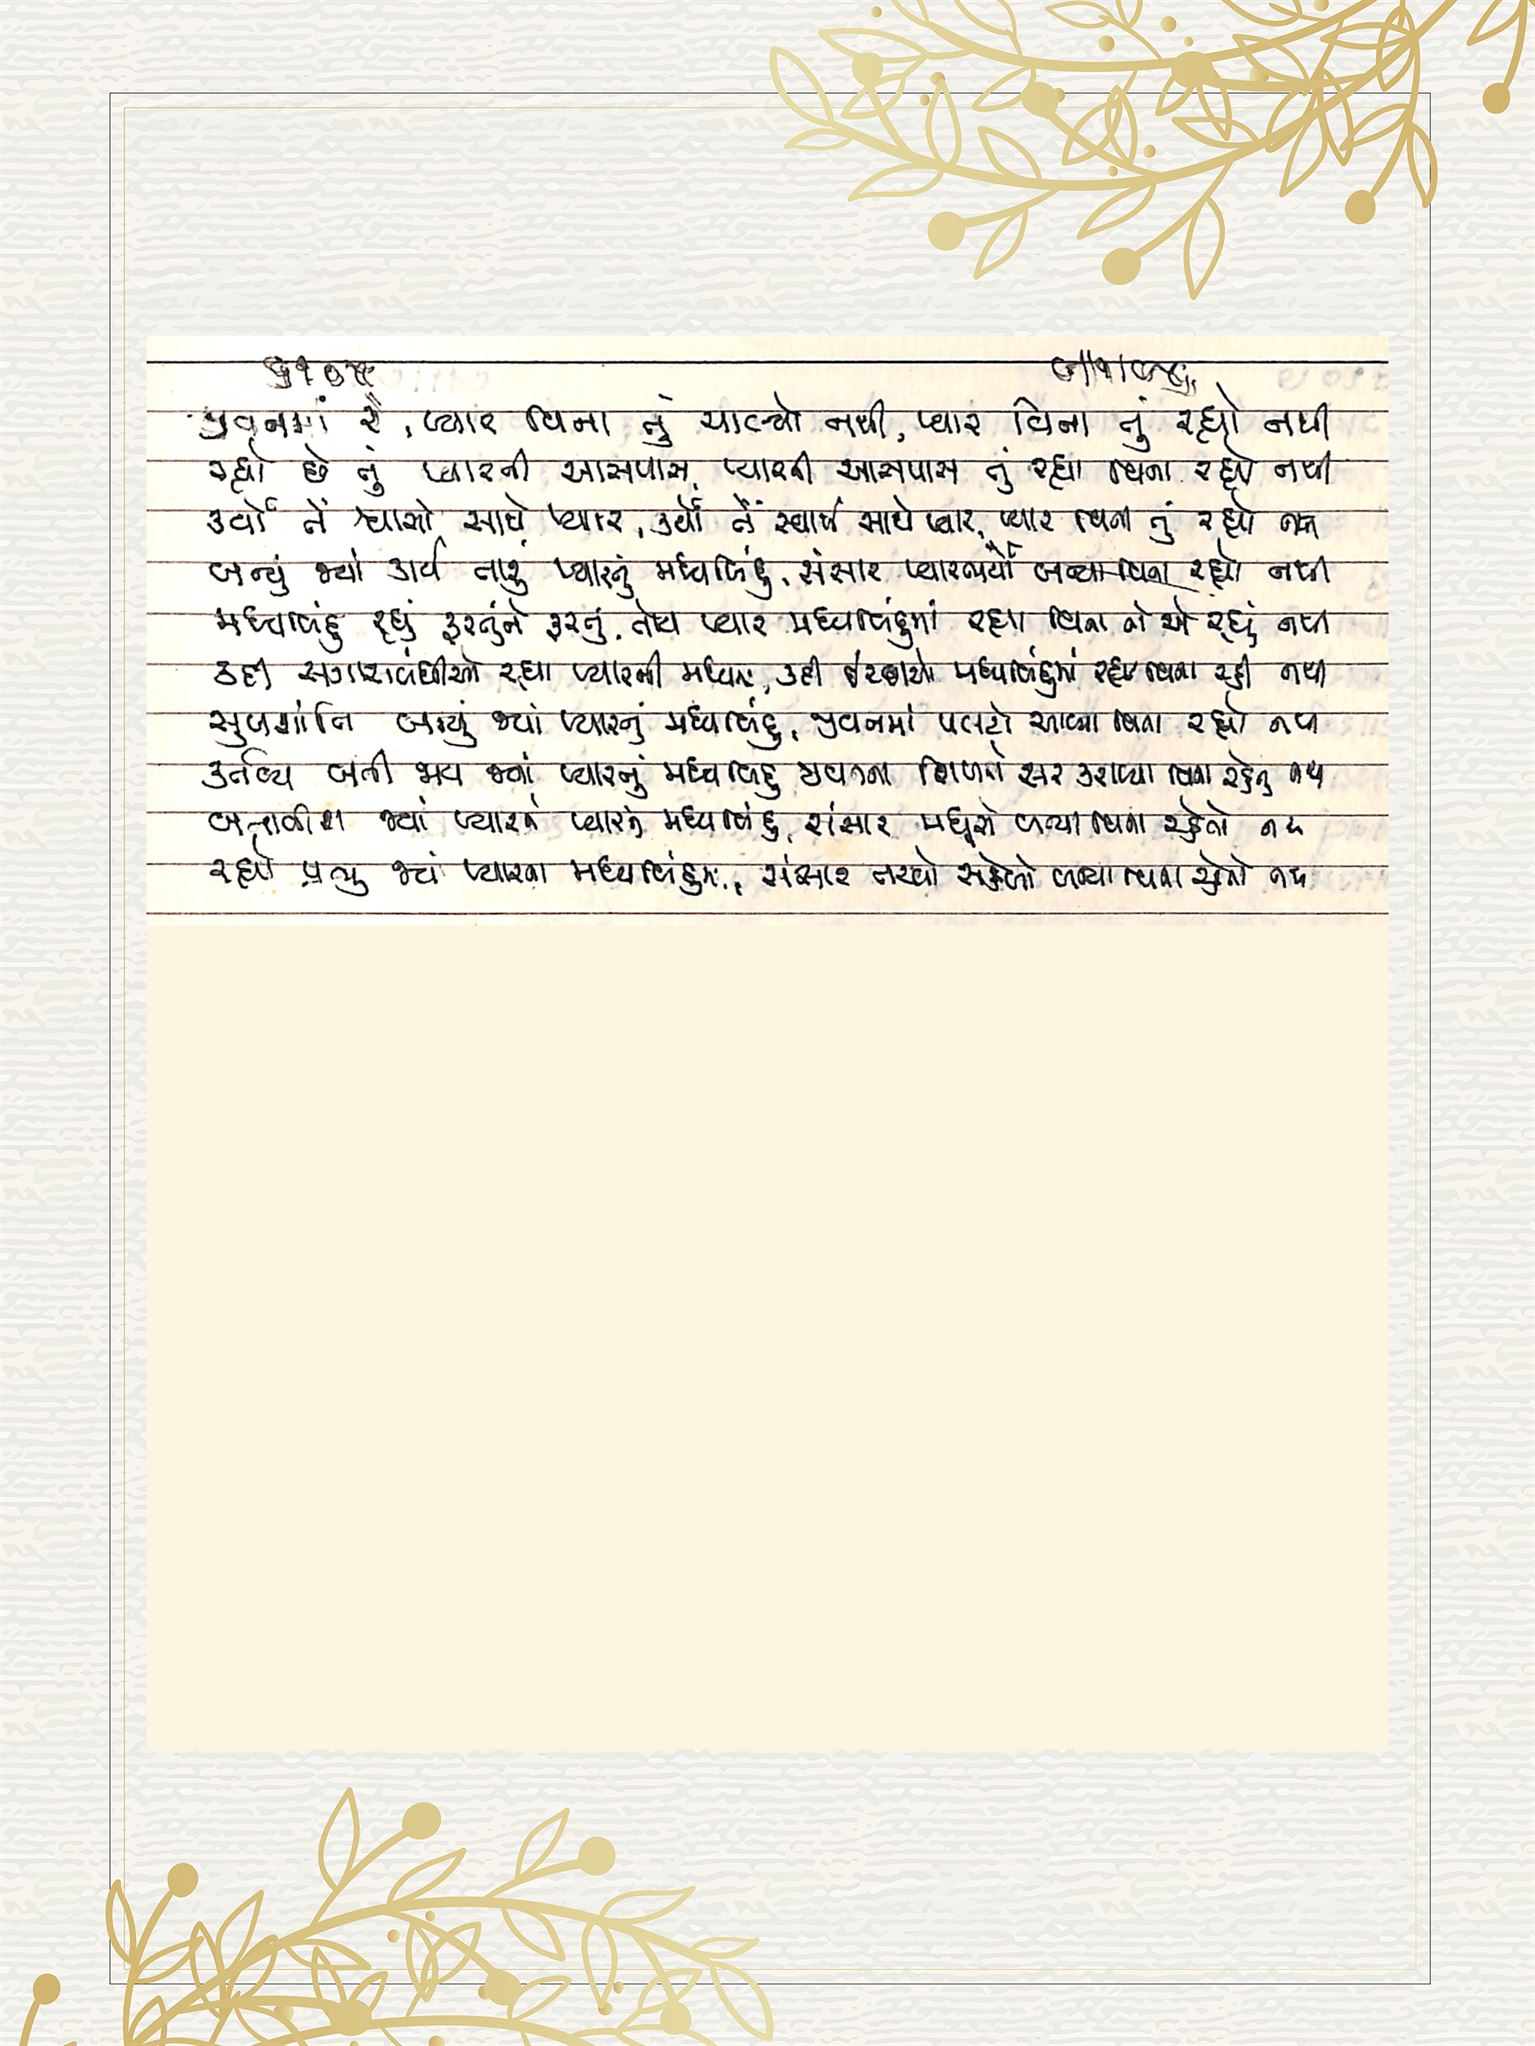 જીવનમાં રે, પ્યાર વિના તું ચાલ્યો નથી, પ્યાર વિના તું રહ્યો નથી
રહ્યો છે તું પ્યારની આસપાસ, પ્યારની આસપાસ તું રહ્યા વિના રહ્યો નથી
કર્યો તેં શ્વાસો સાથે પ્યાર, કર્યો તેં સ્વાર્થ સાથે પ્યાર, પ્યાર વિના તું રહ્યો નથી
બન્યું જ્યાં કાર્ય તારું પ્યારનું મધ્યબિંદુ, સંસાર પ્યારભર્યો બન્યા વિના રહ્યો નથી
મધ્યબિંદુ રહ્યું ફરતુંને ફરતું, તોય પ્યાર મધ્યબિંદુમાં રહ્યા વિના કાંઈ એ રહ્યું નથી
કદી સગાસંબંધીઓ રહ્યા પ્યારની મધ્યમાં, કદી ઈચ્છાઓ મધ્યબિંદુમાં રહ્યા વિના રહી નથી
સુખશાંતિ બન્યું જ્યાં પ્યારનું મધ્યબિંદુ, જીવનમાં પલટો આવ્યા વિના રહ્યો નથી
કર્તવ્ય બની જાય જ્યાં પ્યારનું મધ્યબિંદુ જીવનના શિખરો સર કરાવ્યા વિના રહેતું નથી
જ્યાં પ્યારને પ્યારનું મધ્યબિંદુ, સંસાર મધૂરો બન્યા વિના રહેતો નથી
રહ્યો પ્રભુ જ્યાં પ્યારના મધ્યબિંદુમાં, સંસાર તરવો સહેલો બન્યા વિના રહેતો નથી